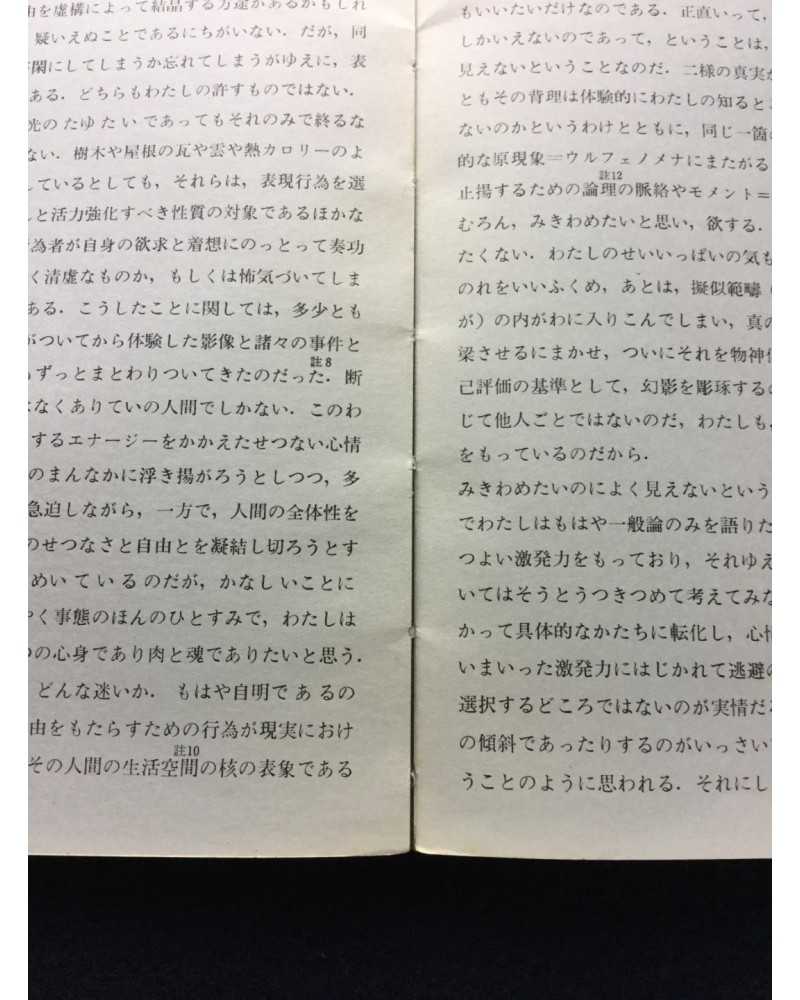 由を虚構によって結晶する方途があるかもしれ
疑いえぬことであるにちがいない．だが，同
閑にしてしまうか忘れてしまうがゆえに，表
ある．どちらもわたしの許すものではない．
光の たゆ たい であってもそれのみで終るな
ない．樹木や屋根の瓦や雲や熱カロリーのよ
しているとしても，それらは，表現行為を選
と活力強化すべき性質の対象であるほかな
為者が自身の欲求と着想にのっとって奏功
く清虚なものか，もしくは怖気づいてしま
ある．こうしたことに関しては，多少とも
がついてから体験した影像と諸々の事件と
註8
ずっとまとわりついてきたのだった．断
なくありていの人間でしかない．このわ
するエナージーをかかえたせつない心情
のまんなかに浮き揚がろうとしつつ，多
急迫しながら，一方で，人間の全体性を
のせつなさと自由とを凝結し切ろうとす
めい て い る のだが，かなし いことに
く事態のほんのひとすみで，わたしは
の心身であり肉と魂でありたいと思う．
どんな迷いか． もはや自明で あ るの
由をもたらすための行為が現実におけ
註10
その人間の生活空間の核の表象である
もいいたいだけなのである．正直いって，
しかいえないのであって，ということは，
見えないということなのだ．二様の真実が
ともその背理は体験的にわたしの知ると
ないのかというわけとともに，同じ一箇
的な原現象＝ウルフェノメナにまたがる
註12
止揚するための論理の脈絡やモメント＝
むろん，みきわめたいと思い，欲する．
たくない．わたしのせいいっぱいの気も
のれをいいふくめ，あとは，擬似範疇（
が）の内がわに入りこんでしまい，真の
梁させるにまかせ，ついにそれを物神
己評価の基準として，幻影を彫琢する
じて他人ごとではないのだ，わたしも
をもっているのだから．
みきわめたいのによく見えないという
でわたしはもはや一般論のみを語りた
つよい激発力をもっており，それゆえ
いてはそうとうつきつめて考えてみな
かって具体的なかたちに転化し，心情
いまいった激発力にはじかれて逃避の
選択するどころではないのが実情だ
の傾斜であったりするのがいっさい
うことのように思われる．それにし